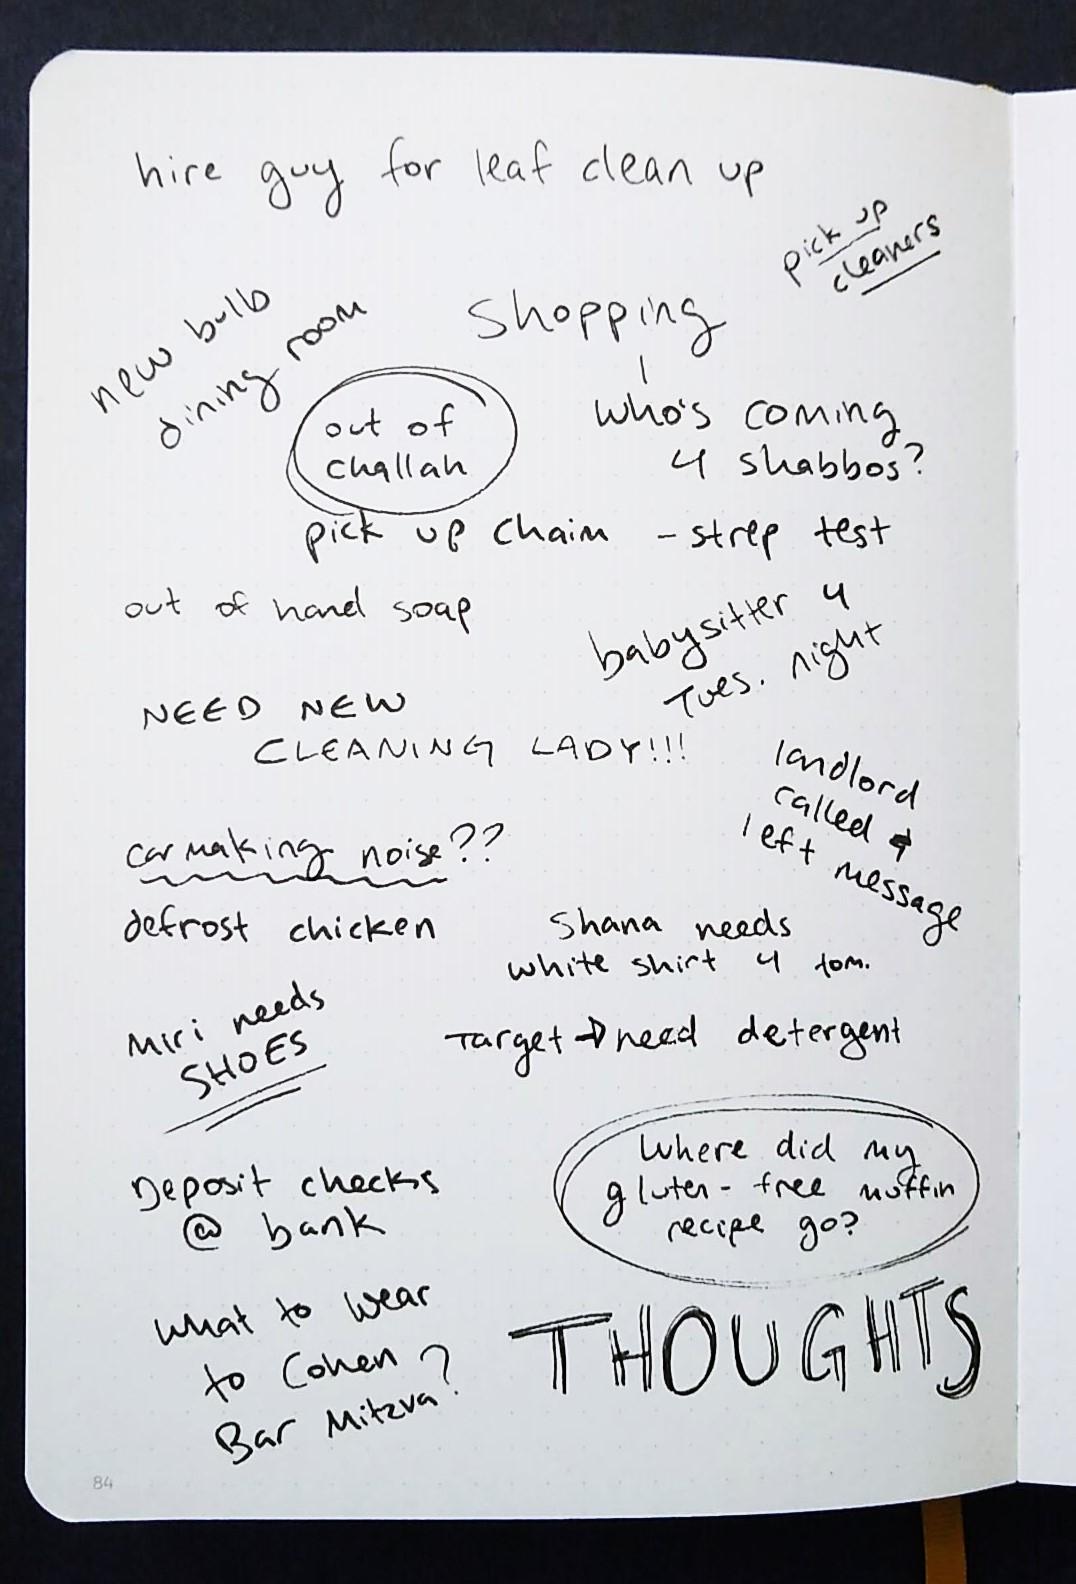 hire guy for leaf clean up
pick up
cleaners
new bulb
dining room
Shopping
out of
challah
who's coming
4 shabbos?
pick up Chaim - strep test
out of hand soap
babysitter 4
Tues. night
NEED NEW
CLEANING LADY!!!
landlord
called &
left message
car making noise??
defrost chicken
Shana needs
white shirt 4 tom.
Miri needs
SHOES
Target → need detergent
Where did my
gluten-free muffin
recipe go?
Deposit checks
@ bank
What to wear
to Cohen ?
Bar Mitzva
THOUGHTS
84